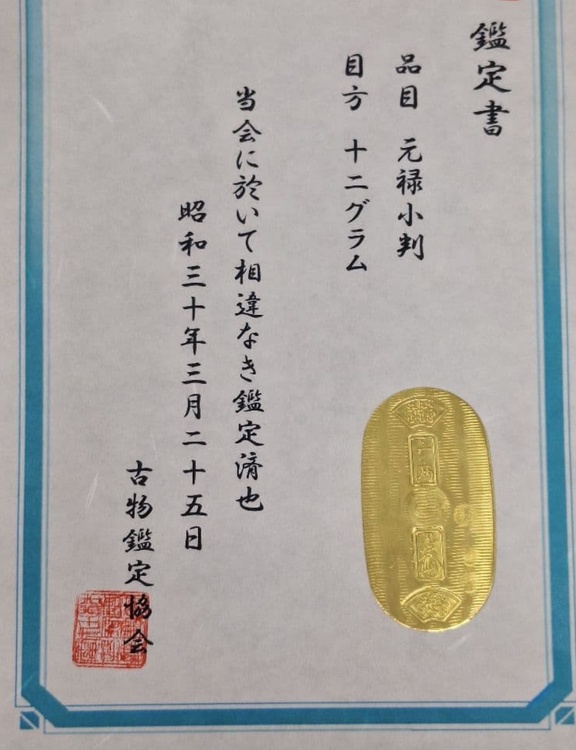 鑑定書
品目 元禄小判
目方 十二グラム
当会に於いて相違なき鑑定済也
昭和三十年三月二十五日
古物鑑定協会